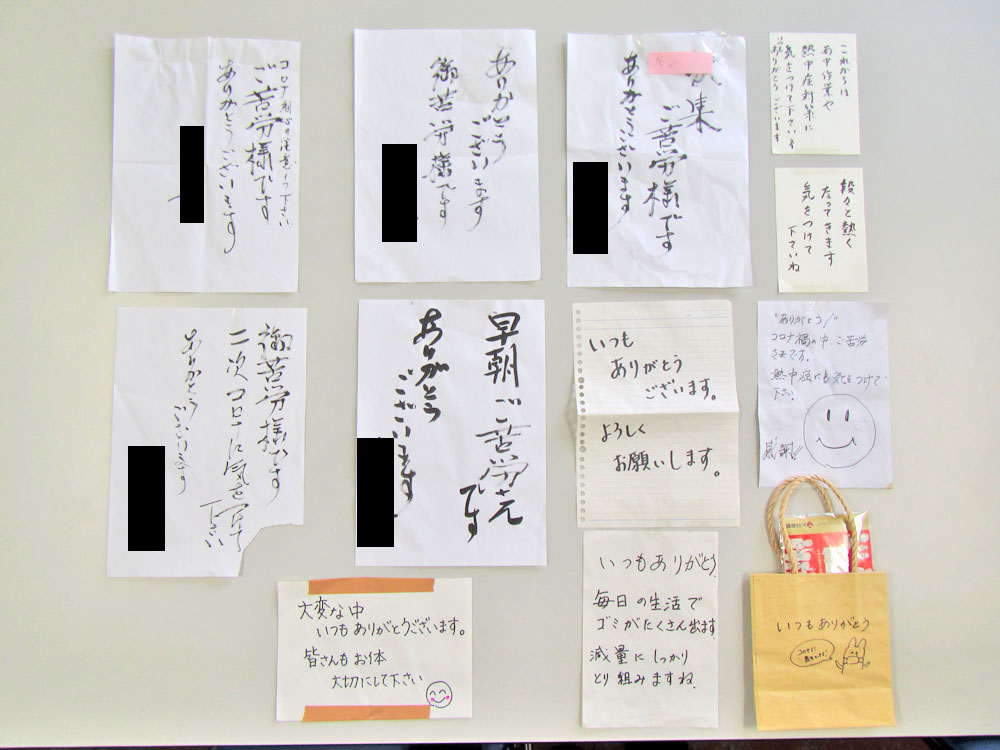 コロナ
下さい
ご苦労様です
ありがとうございます
ありがとう
ございます
御苦労様です
集
ご苦労様です
ありがとうございます
これからは
雨中作業や
熱中症対策に
気をつけて下さい
ありがとうございます
段々と熱く
なってきます
気をつけて
下さいね
御苦労様です
二次コロナに気を付けて
下さい
ありがとう
ございます
早朝ご苦労さん
です
ありがとう
ございます
いつも
ありがとう
ございます。
よろしく
お願いします。
"ありがとう!"
コロナ禍の中、ご苦労
さまです。
熱中症にも気をつけて
下さい
感謝!!
大変な中
いつもありがとうございます。
皆さんもお体
大切にして下さい
いつもありがとう
毎日の生活で
ゴミがたくさん出ます
減量にしっかり
とり組みますね。
いつもありがとう
コロナに